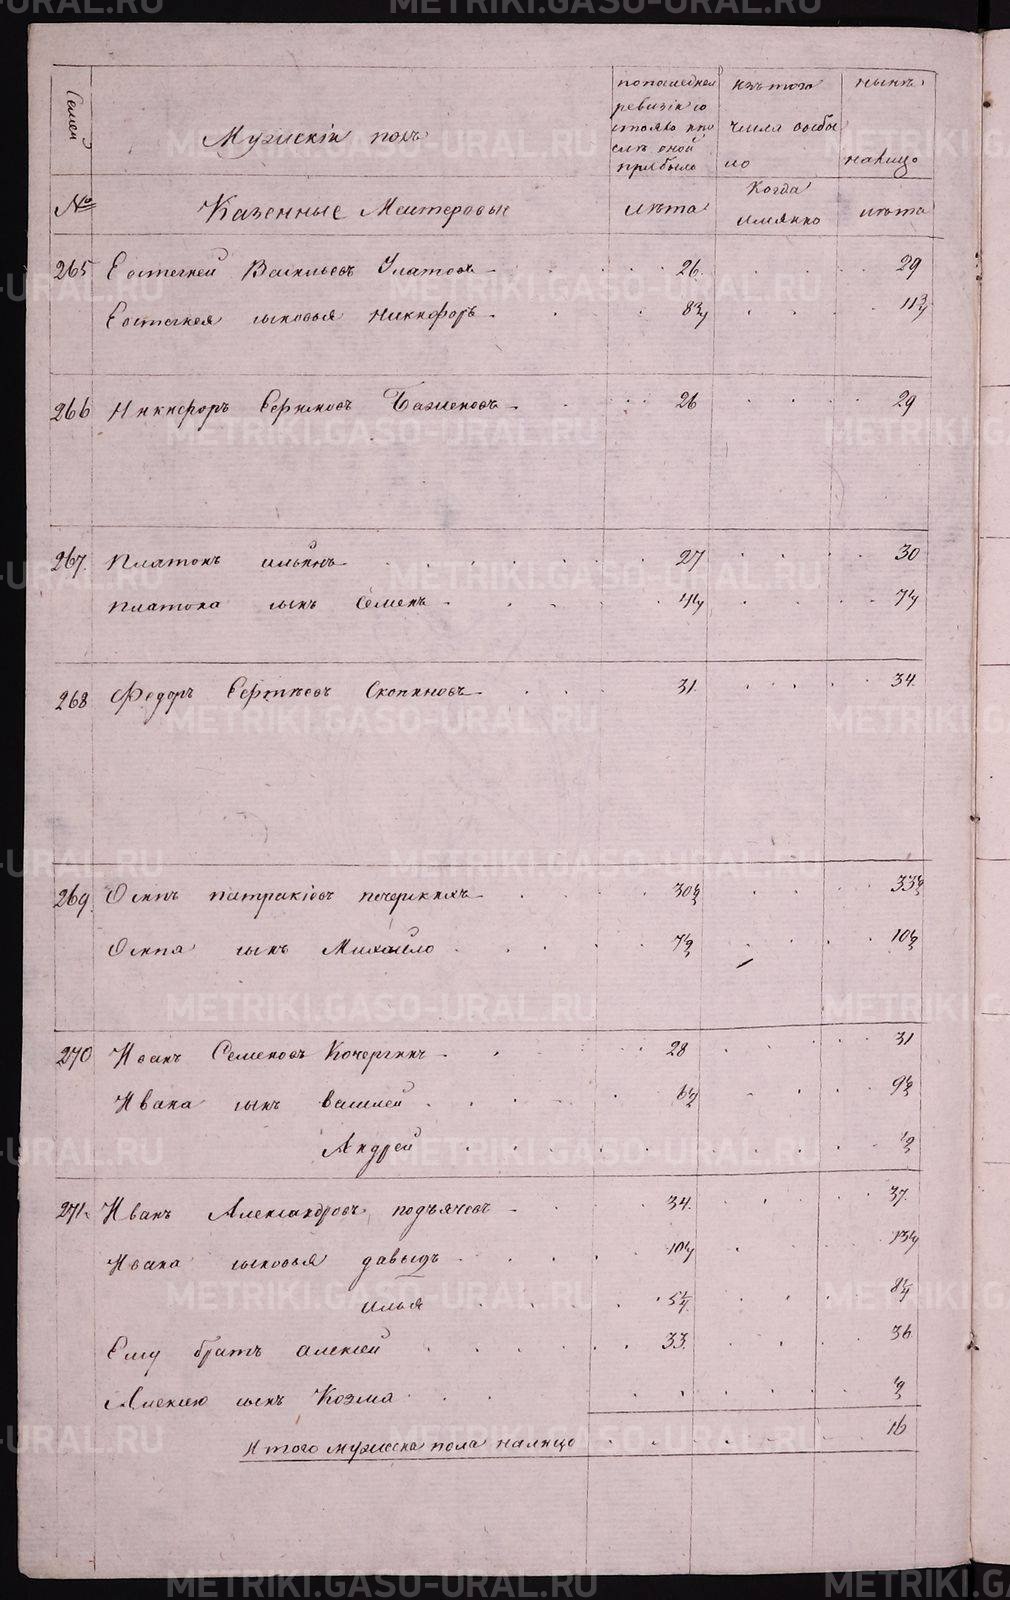 Семей
Мужскiй полъ
по последней ревизiи состояло и после оной прибыло
изъ того числа выбыло
ныне на лицо
№
Казенные Мастеровые
лета
Когда имянно
лета
265 Евстегней Васильевъ Улатовъ 26. 29
Евстегнея сыновья Никифоръ 8¾ 11¾
266 Никифоръ Бажековъ 26 29
267. Платонъ Ильинъ 27 30
Платона сынъ Семенъ 4¼ 7¼
268 Федоръ Скопиновъ 31. 34.
269. Осипъ Патракiевъ 30½ 33½
Осипа сынъ Михайло 7½ 10½
270 Иванъ Семеновъ Кочергинъ 28 31
Ивана сынъ Василей 6½ 9½
Андрей ½
271. Иванъ Александровъ подъячевъ 34. 37.
Ивана сыновья давыдъ 10¼ 13¼
илья 5¼ 8¼
Ему братъ алексей 33. 36
Алексею сынъ Козма ½
Итого мужеска пола налицо 16
METRIKI.GASO-URAL.RU